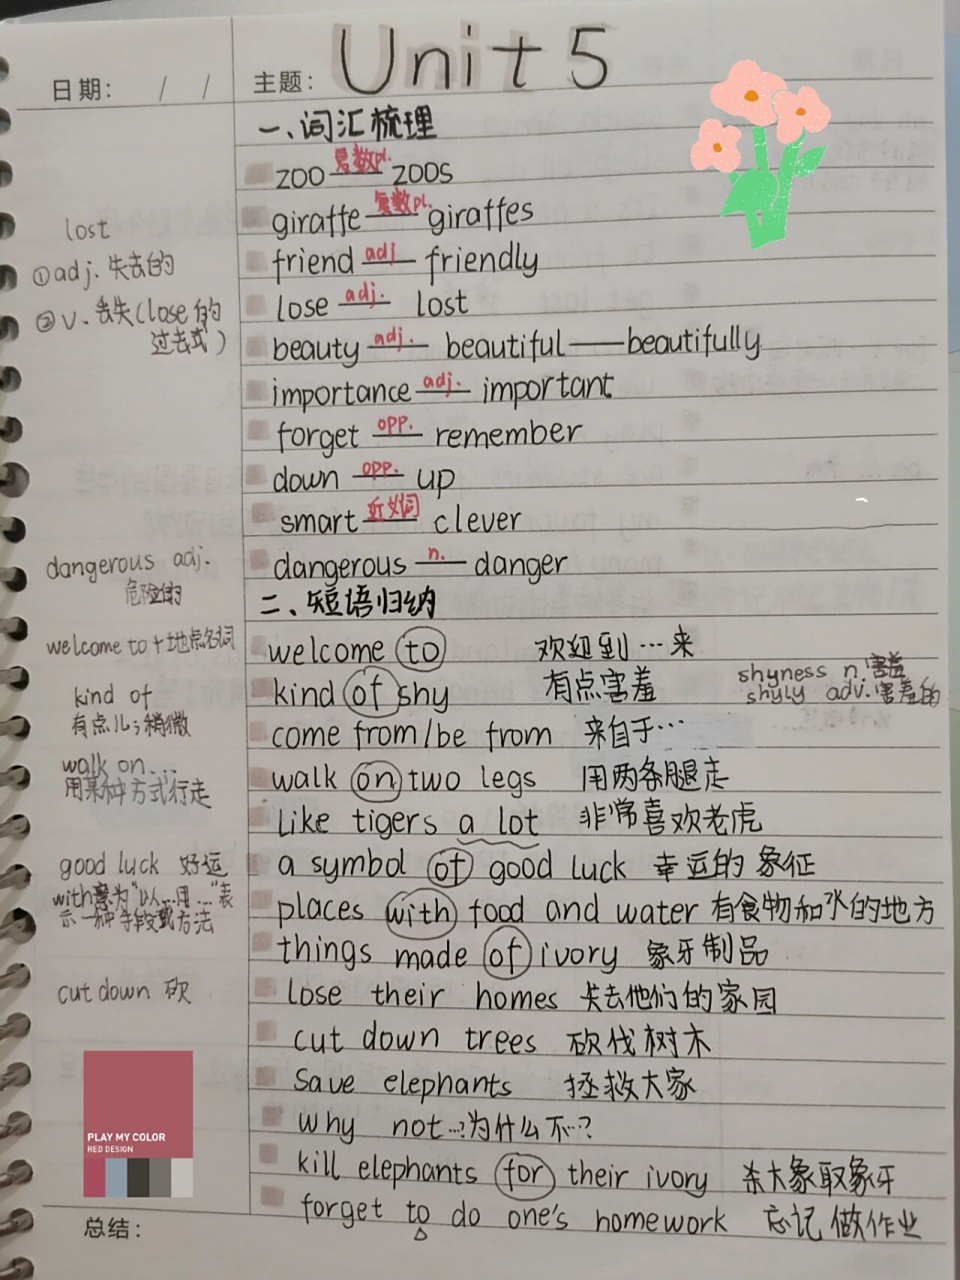 Unit 5
日期： / / 主题：
一、词汇梳理
zoo 复数pl. zoos
giraffe 复数pl. giraffes
lost
friend adj friendly
①adj. 失去的
lose adj. lost
②v. 丢失(lose的
过去式)
beauty adj. beautiful — beautifully
importance adj. important
forget opp. remember
down opp. up
smart 近义词 clever
dangerous adj.
危险的
dangerous n. danger
二、短语归纳
welcome to+地点名词
welcome to 欢迎到…来
kind of
有点儿；稍微
kind of shy 有点害羞
shyness n.害羞
shyly adv.害羞的
come from/be from 来自于…
walk on...
用某种方式行走
walk on two legs 用两条腿走
like tigers a lot 非常喜欢老虎
good luck 好运
a symbol of good luck 幸运的象征
with意为"以…用…"表
示一种手段或方法
places with food and water 有食物和水的地方
things made of ivory 象牙制品
cut down 砍
lose their homes 失去他们的家园
cut down trees 砍伐树木
Save elephants 拯救大家
why not…?为什么不…?
PLAY MY COLOR
RED DESIGN
kill elephants for their ivory 杀大象取象牙
forget to do one's homework 忘记做作业
总结：